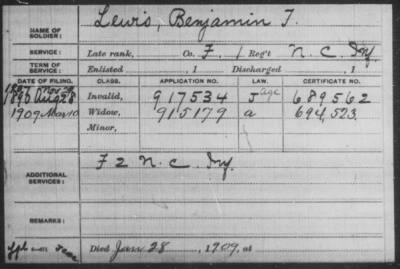 NAME OF SOLDIER: Lewis, Benjamin T.
SERVICE: Late rank, Co. F, 1 Reg't N. C. Inf.
TERM OF SERVICE: Enlisted , 1 Discharged , 1
DATE OF FILING. CLASS. APPLICATION NO. LAW. CERTIFICATE NO.
1890 Aug 28 Invalid, 917534 J age 689562
1909 Mar 10 Widow, 915179 a 694,523
Minor,
ADDITIONAL SERVICES: F 2 N. C. Inf.
REMARKS:
Died Jan 28, 1909, at